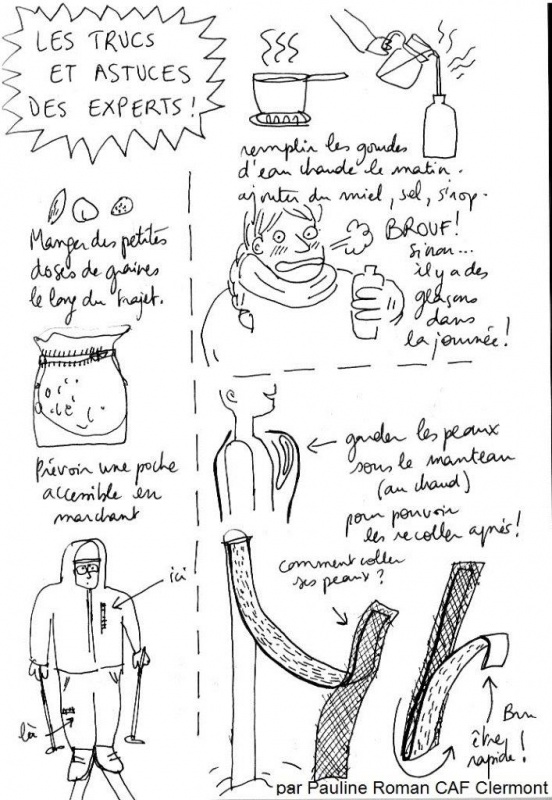 LES TRUCS
ET ASTUCES
DES EXPERTS !
Manger des petites
doses de graines
le long du trajet.
Prévoir une poche
accessible en
marchant
ici
là
remplir les gourdes
d'eau chaude le matin.
ajouter du miel, sel, sirop.
BROUF !
sinon...
il y a des
glaçons
dans
la journée !
garder les peaux
sous le manteau
(au chaud)
pour pouvoir
les recoller après !
comment coller
ses peaux ?
être
rapide !
par Pauline Roman CAF Clermont